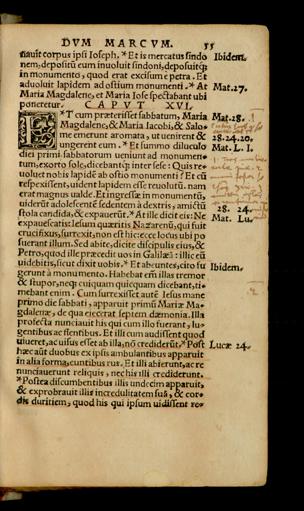 DVM MARCVM. 55
nauit corpus ipsi Ioseph. *Et is mercatus sindo Ibidem.
nem, depositũ cum inuoluit sindoni, deposuitq;
in monumento, quod erat excisum è petra. Et
aduoluit lapidem ad ostium monumenti. *At Mat.27.
Maria Magdalene, et Maria Iose spectabant ubi
poneretur. CAPVT XVI.
ET cum præterisset sabbatum, Maria Mat.28.
Magdalene, & Maria Iacobi, & Salo-
me emerunt aromata, ut uenirent & 28.24.20.
ungerent eum. *Et summo diluculo Mat. L. I.
dici primi sabbatorum ueniunt ad monumen-
tum, exorto sole, dicebantq; inter se se: Quis re-
uoluet nobis lapidẽ ab ostio monumenti? Et cũ
respexissent, uident lapidem esse reuolutũ. nam
erat magnus ualde. Et ingressæ in monumentũ,
uiderũt adolescentẽ sedentem à dextris, amictũ
stola candida, & expauerũt. *At ille dicit eis: Ne 28. 24.
expauescatis: Iesum quæritis Nazarenũ, qui fuit Mat. Lu.
crucifixus, surrexit, non est hic: ecce locus ubi po
suerant illum. Sed abite, dicite discipulis eius, &
Petro, quod ille præcedit uos in Galilæã: illic eũ
uidebitis, sicut dixit uobis. *Et abeuntes, cito fu Ibidem.
gerunt à monumento. Habebat em̃ illas tremor
& stupor, neq; cuiquam quicquam dicebant, ti-
mebant enim. Cum surrexisset autẽ Iesus mane
primo die sabbati, apparuit primũ Mariæ Ma-
gdalenæ, de qua eiecerat septem dæmonia. Illa
profecta nunciauit his qui cum illo fuerant, lu-
gentibus ac flentibus. Et illi cum audissent quod
uiueret, ac uisus esset ab illa, nõ crediderũt. *Post Lucæ 24.
hæc aũt duobus ex ipsis ambulantibus apparuit
in alia forma, euntibus rus. Et illi abierunt, ac re
nunciauerunt reliquis, nec his illi crediderunt.
*Postea discumbentibus illis undecim apparuit,
& exprobrauit illis incredulitatem suã, & cor-
dis duritiem, quod his qui ipsum uidissent re-